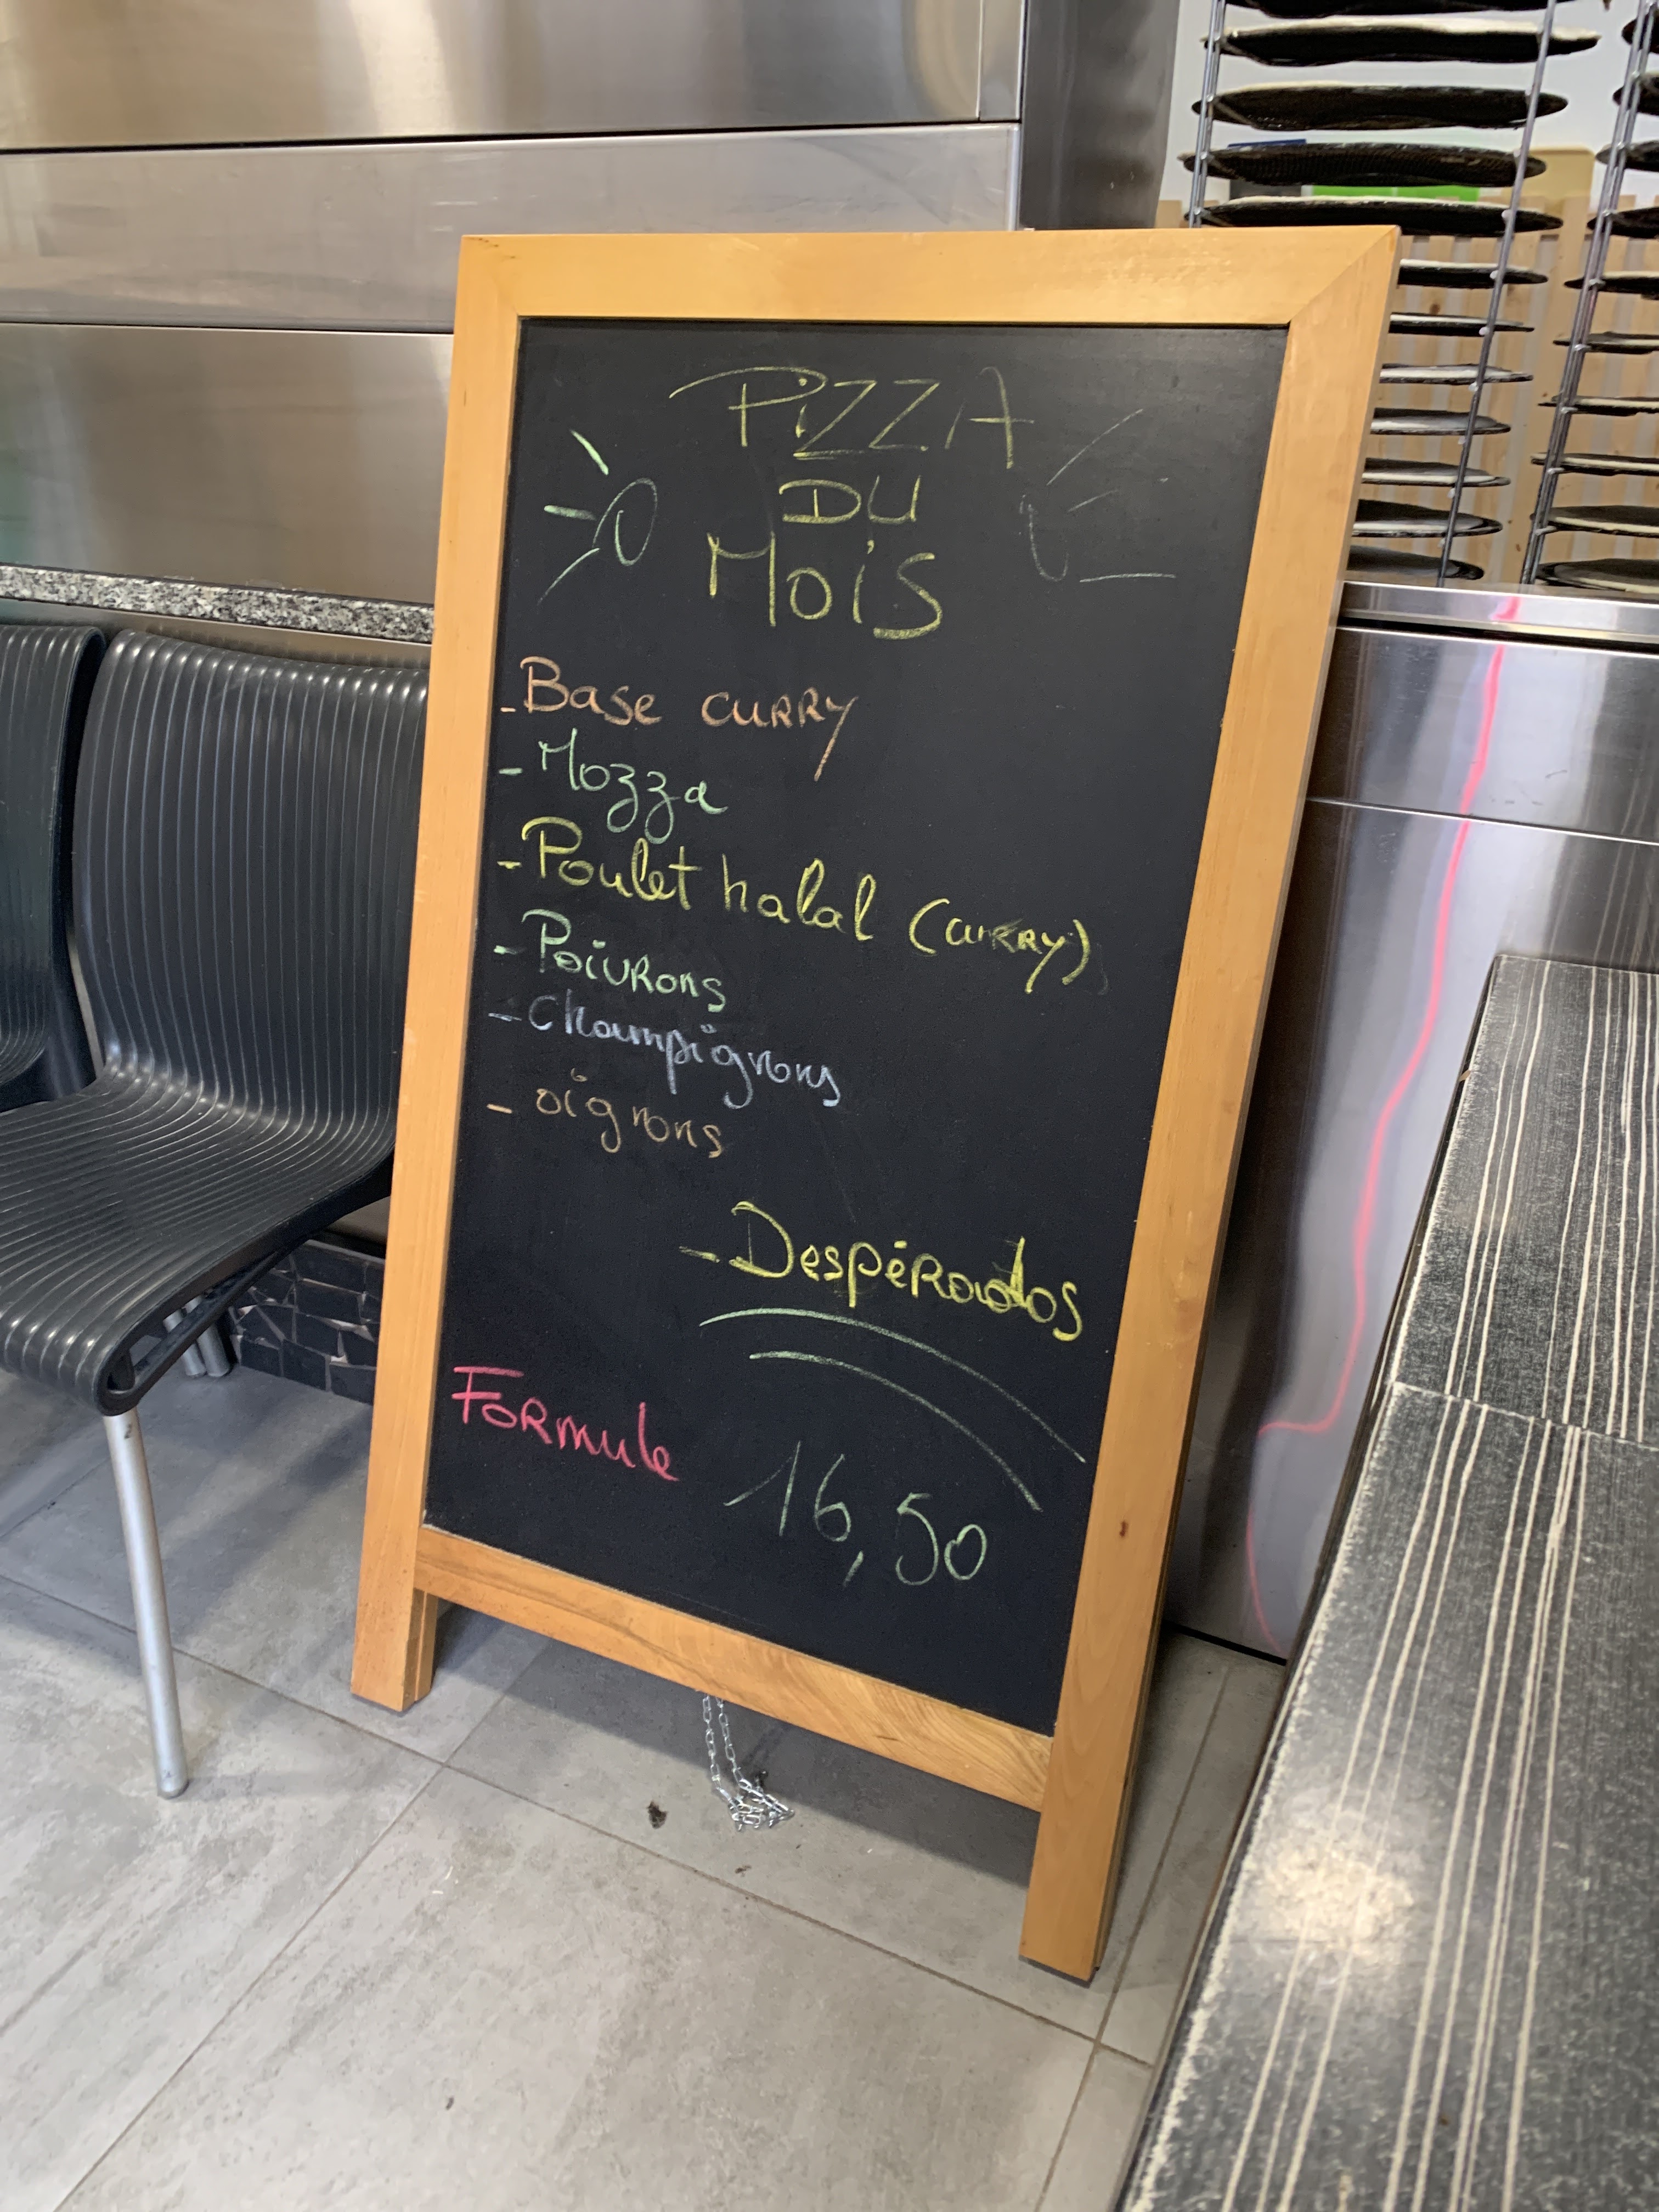 PiZZA
DU
MoiS
- Base CURRY
- Mozza
- Poulet halal (CURRY)
- PoiVRons
- Champignons
- oignons
- DespéRados
FoRmule
16,50